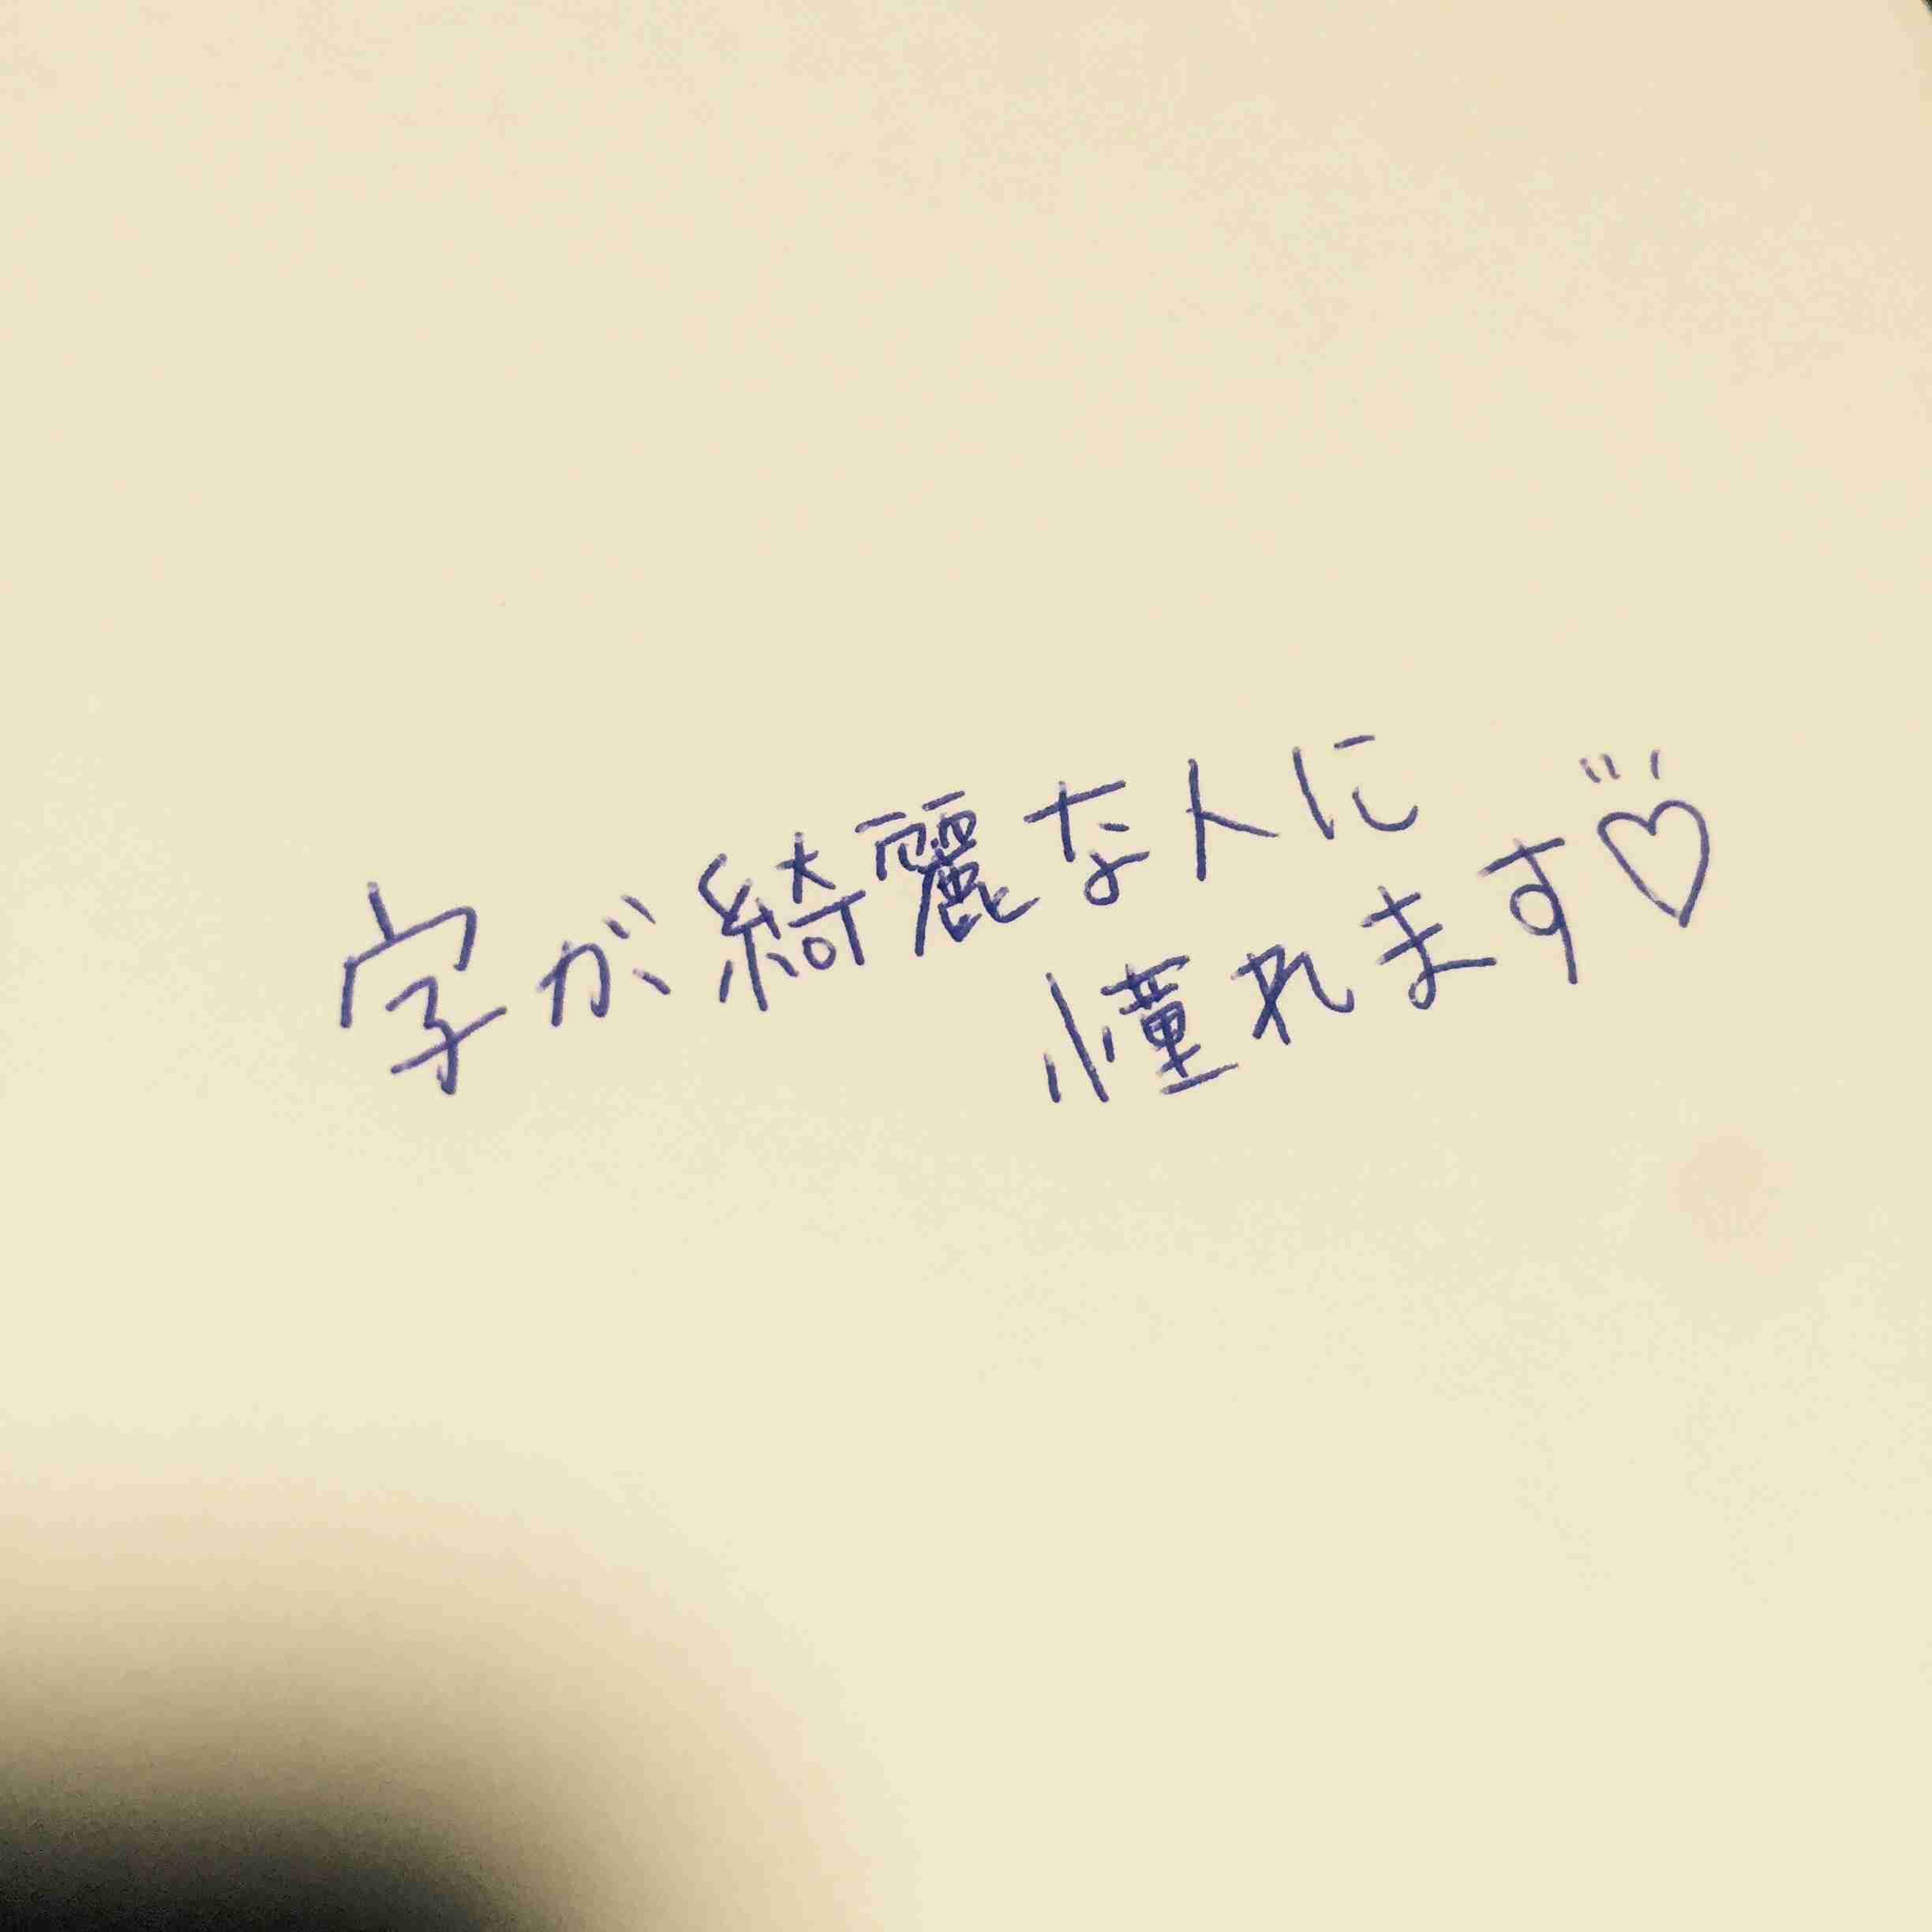 字が綺麗な人に
憧れます♡